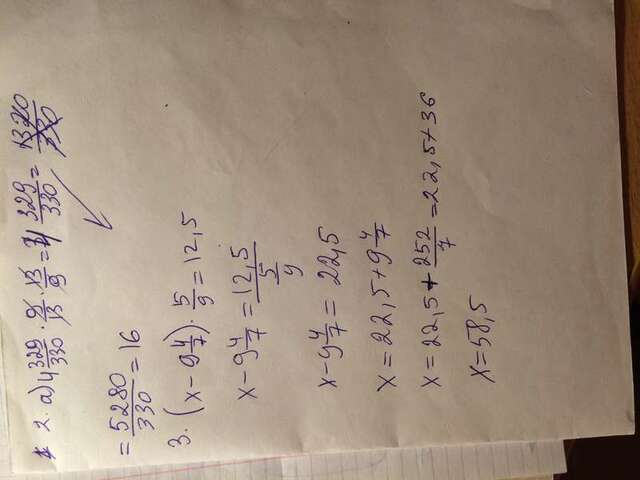 2. а) 4 329/330 · 9/13 · 13/9 = 4 329/330 = 1320/330
= 5280/330 = 16
3. (x - 9 4/7) · 5/9 = 12,5
x - 9 4/7 = 12,5 / 5/9
x - 9 4/7 = 22,5
x = 22,5 + 9 4/7
x = 22,5 + 252/7 = 22,5 + 36
x = 58,5